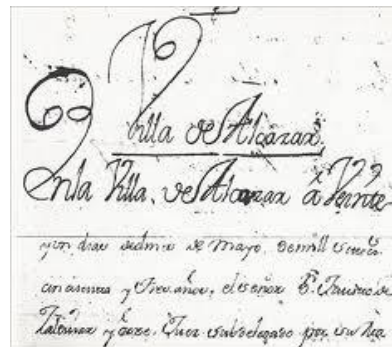 Villa de Alcazar
En la Villa, de Alcazar à Veinte
y un dias del mes de Mayo, de mill setezs.
cinquenta y tres años, el señor
y Juez subdelegado por su Ma